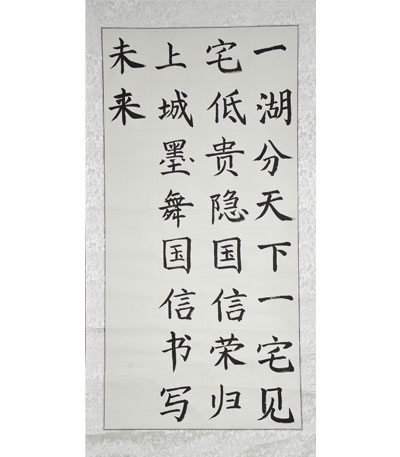 一湖分天下一宅见
宅低贵隐国信荣归
上城墨舞国信书写
未来